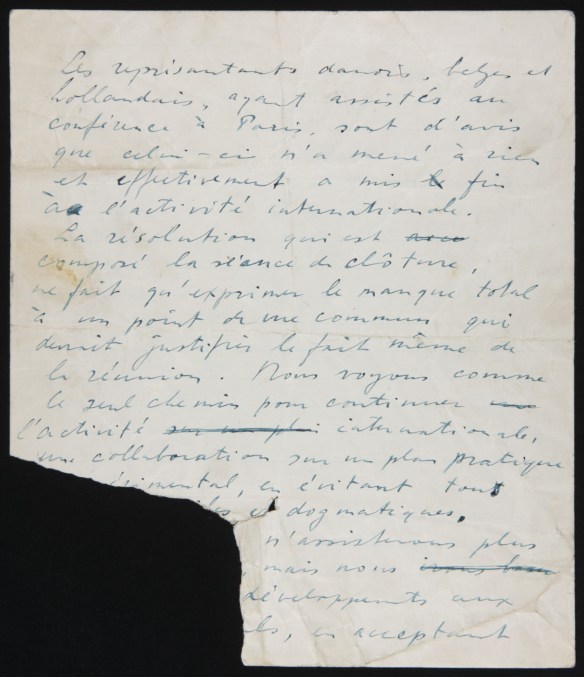 Les représantants danois, belges et
hollandais, ayant assistés au
conférence à Paris, sont d'avis
que celui-ci n'a mené à rien
et effectivement a mis fin
à l'activité internationale.
La résolution qui est
composé la séance de clôture,
ne fait qu'exprimer le manque total
à un point de vue commun qui
devrait justifier le fait même de
la réunion. Nous voyons comme
le seul chemin pour continuer
l'activité sur un pl internationale,
une collaboration sur un plan pratique
rimental, en évitant tout
les et dogmatiques,
n'assisterons plus
, mais nous
développements aux
ls, en acceptant